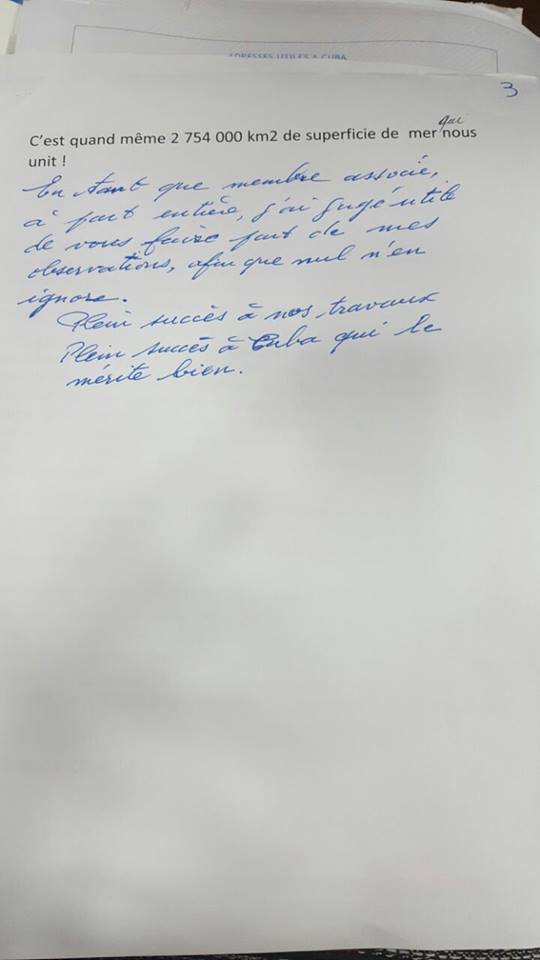 ADRESSES UTILES A CUBA
3
C'est quand même 2 754 000 km2 de superficie de mer qui nous
unit !
En tant que membre associé,
à part entière, j'ai jugé utile
de vous faire part de mes
observations, afin que nul n'en
ignore.
Plein succès à nos travaux
Plein succès à Cuba qui le
mérite bien.